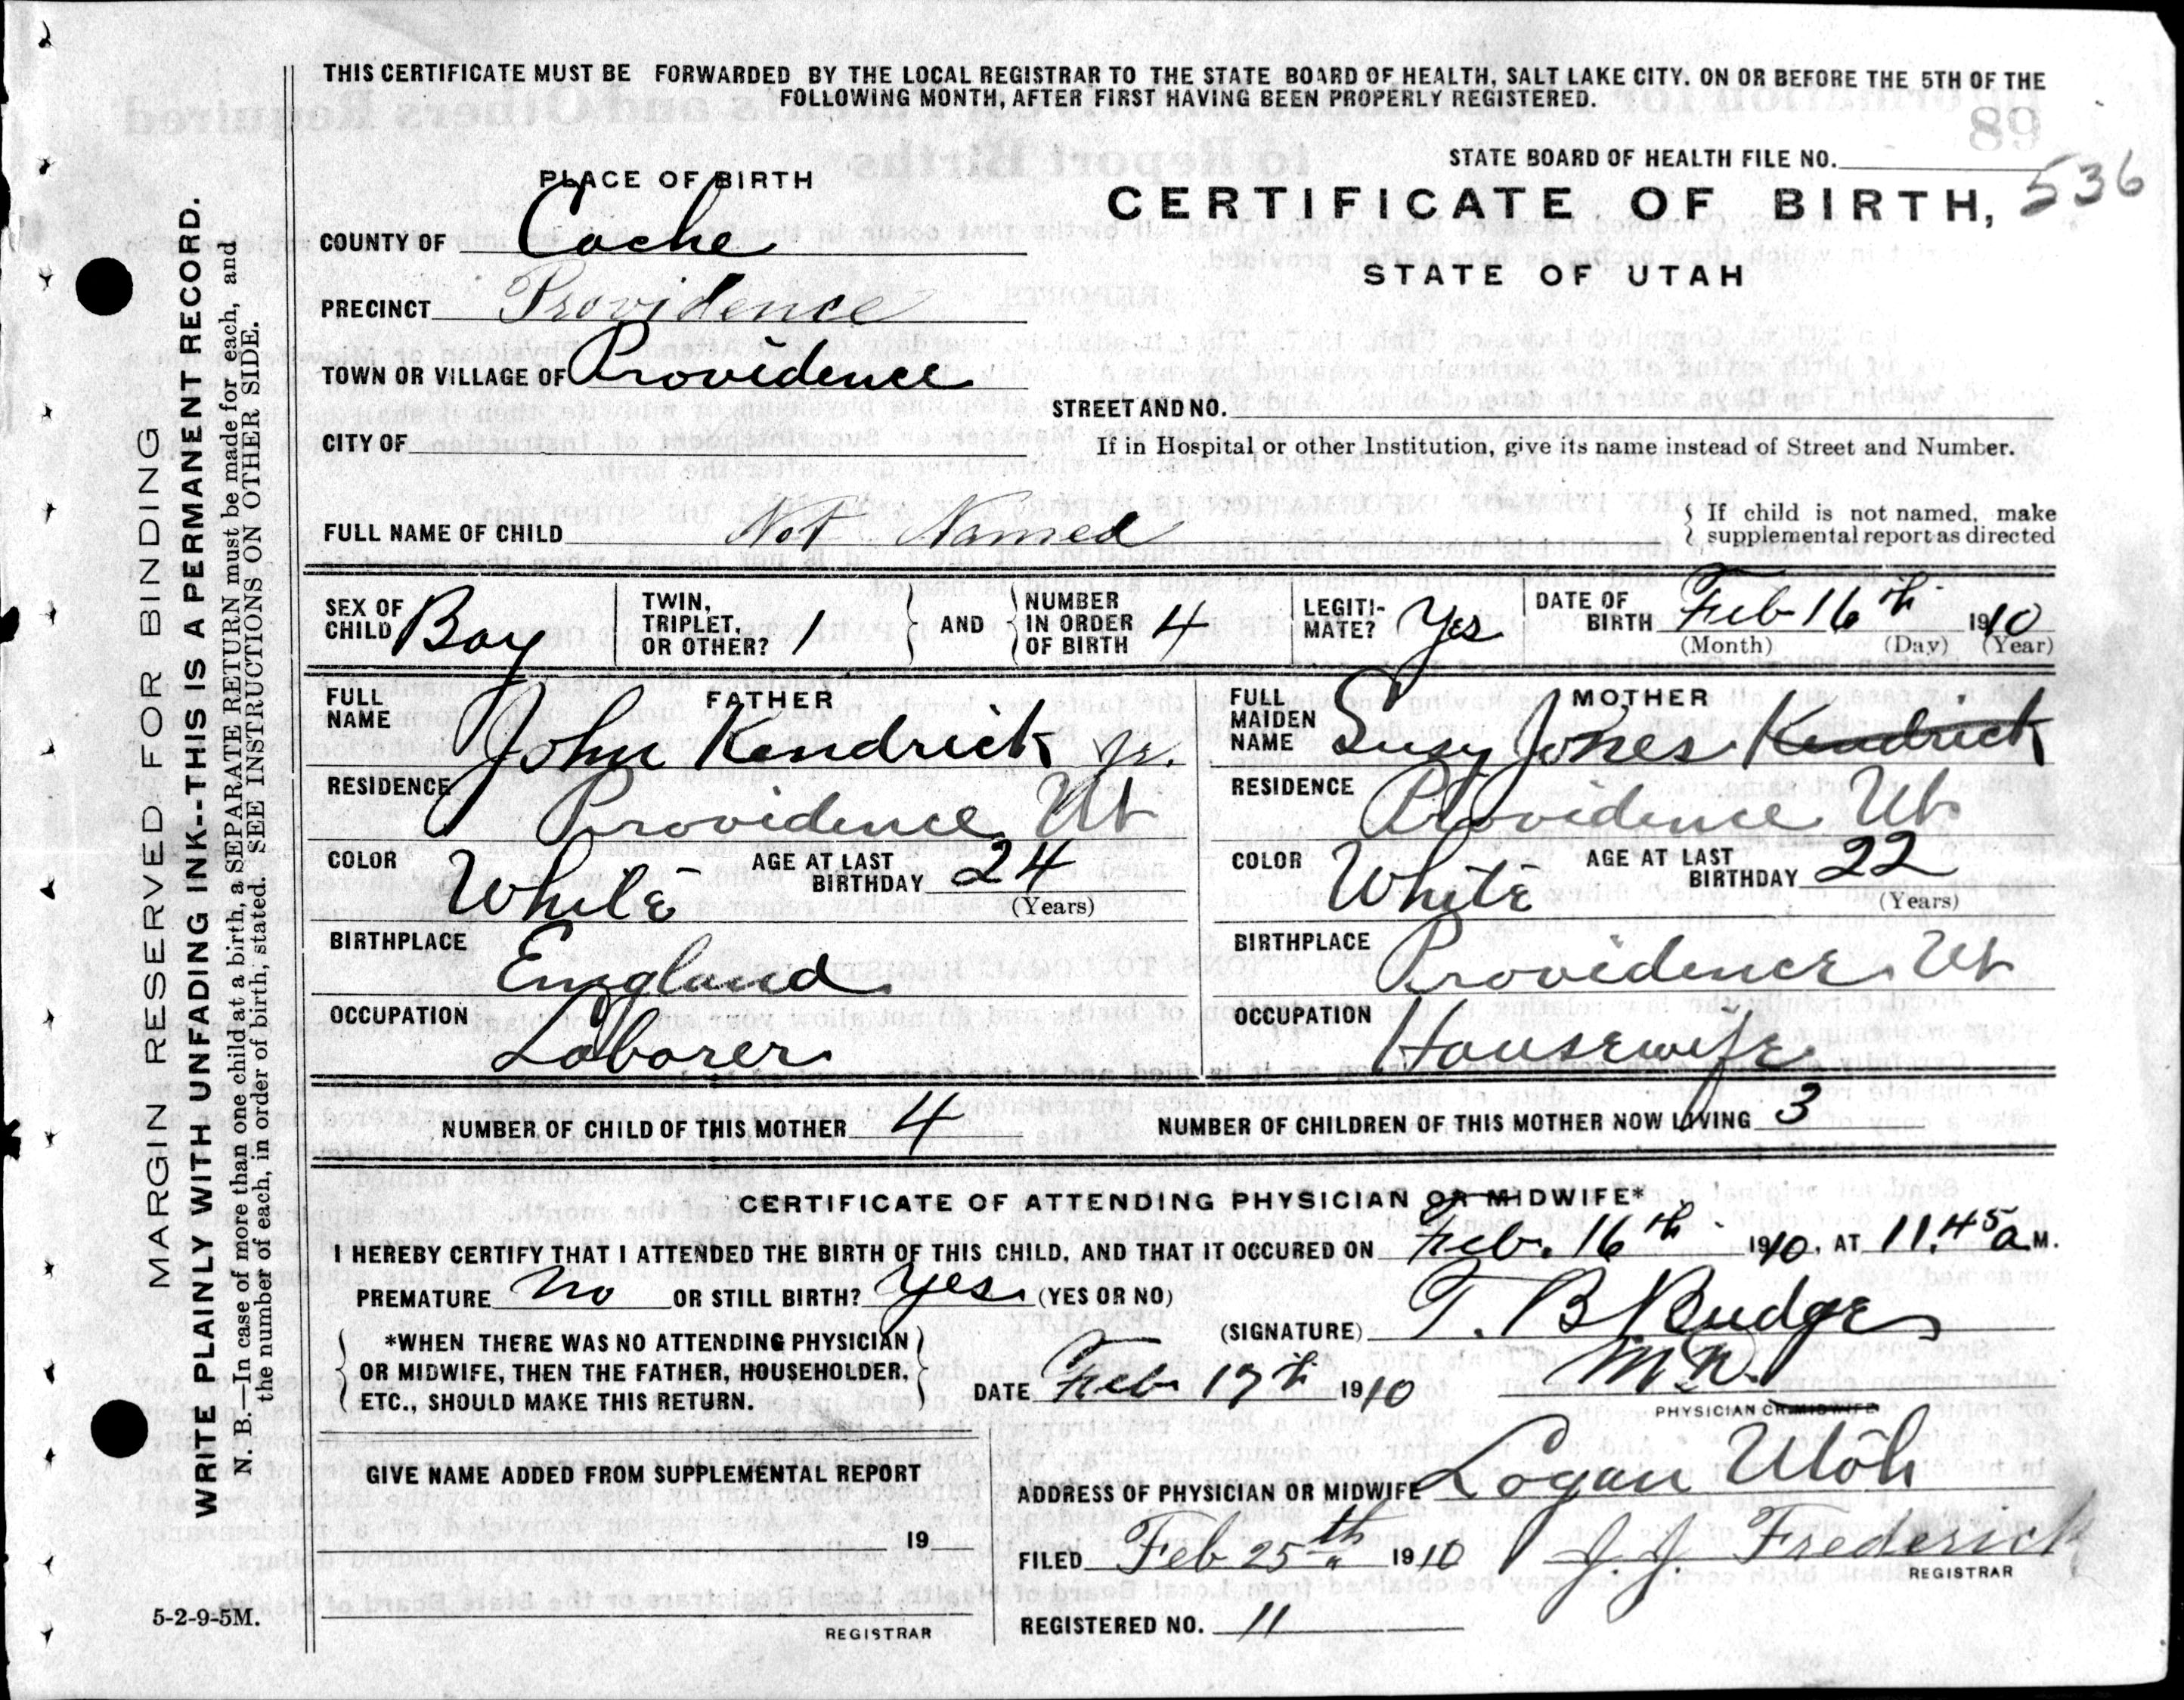 THIS CERTIFICATE MUST BE FORWARDED BY THE LOCAL REGISTRAR TO THE STATE BOARD OF HEALTH, SALT LAKE CITY. ON OR BEFORE THE 5TH OF THE
FOLLOWING MONTH, AFTER FIRST HAVING BEEN PROPERLY REGISTERED.
STATE BOARD OF HEALTH FILE NO.
536
PLACE OF BIRTH
CERTIFICATE OF BIRTH,
STATE OF UTAH
COUNTY OF Cache
PRECINCT Providence
TOWN OR VILLAGE OF Providence
STREET AND NO.
CITY OF
If in Hospital or other Institution, give its name instead of Street and Number.
FULL NAME OF CHILD Not Named
{ If child is not named, make
supplemental report as directed
SEX OF CHILD Boy
TWIN, TRIPLET, OR OTHER? 1 } AND { NUMBER IN ORDER OF BIRTH 4
LEGITI-MATE? Yes
DATE OF BIRTH Feb 16th 1910
(Month) (Day) (Year)
FATHER
FULL NAME John Kendrick Jr.
RESIDENCE Providence Ut
COLOR White AGE AT LAST BIRTHDAY 24
(Years)
BIRTHPLACE England
OCCUPATION Laborer
MOTHER
FULL MAIDEN NAME Susy Jones Kendrick
RESIDENCE Providence Ut
COLOR White AGE AT LAST BIRTHDAY 22
(Years)
BIRTHPLACE Providence Ut
OCCUPATION Housewife
NUMBER OF CHILD OF THIS MOTHER 4 NUMBER OF CHILDREN OF THIS MOTHER NOW LIVING 3
CERTIFICATE OF ATTENDING PHYSICIAN OR MIDWIFE*
I HEREBY CERTIFY THAT I ATTENDED THE BIRTH OF THIS CHILD, AND THAT IT OCCURED ON Feb. 16th 1910, AT 11.45 a M.
PREMATURE No OR STILL BIRTH? Yes (YES OR NO)
{ *WHEN THERE WAS NO ATTENDING PHYSICIAN
OR MIDWIFE, THEN THE FATHER, HOUSEHOLDER,
ETC., SHOULD MAKE THIS RETURN. }
(SIGNATURE) T. B Budge
M.D.
DATE Feb 17th 1910
PHYSICIAN OR MIDWIFE
GIVE NAME ADDED FROM SUPPLEMENTAL REPORT
19
REGISTRAR
ADDRESS OF PHYSICIAN OR MIDWIFE Logan Utah
FILED Feb 25th 1910 J. J. Frederick
REGISTRAR
REGISTERED NO. 11
5-2-9-5M.
MARGIN RESERVED FOR BINDING
WRITE PLAINLY WITH UNFADING INK--THIS IS A PERMANENT RECORD.
N. B.—In case of more than one child at a birth, a SEPARATE RETURN must be made for each, and
the number of each, in order of birth, stated. SEE INSTRUCTIONS ON OTHER SIDE.